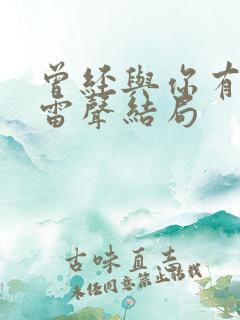 曾經與你有
雷聲結局
古味直走
未經同意禁止搭我